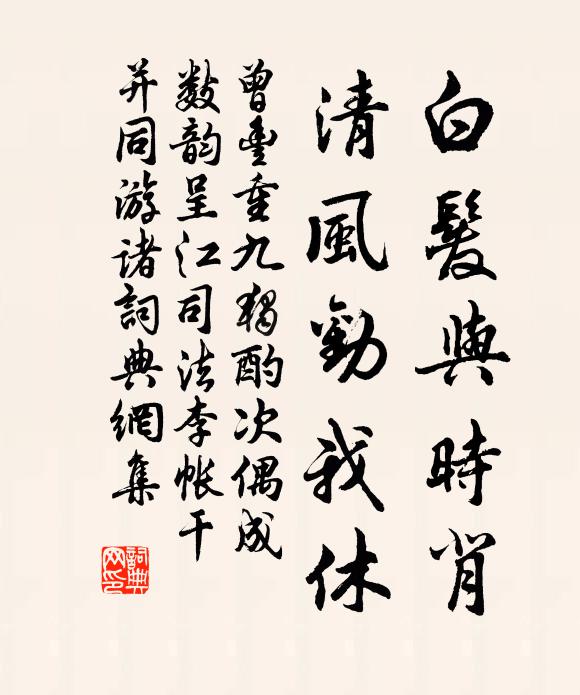 白髮與時肖
清風勸我休
曾豐重九獨酌次偶成
數韵呈江司法李帳干
并同游諸詞典網集
詞典网印